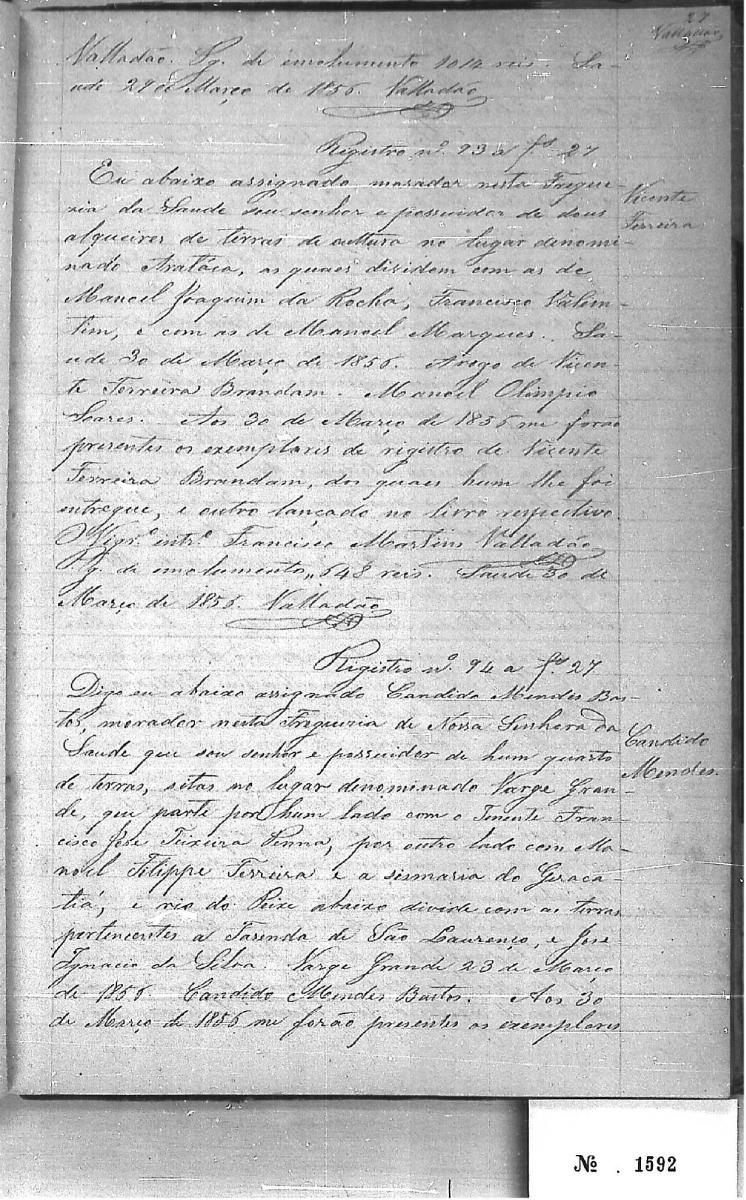 27
Valladão
Valladão. Pg. de emolumento 1014 reis. Sa-
ude 29 de Março de 1856. Valladão
Registro nº. 93 a fs. 27
Eu abaixo assignado morador nesta Fregue-
zia da Saude sou senhor e possuidor de dous
alqueires de terras de cultura no lugar denomi-
nado Arataca, as quaes dividem com as de
Manoel Joaquim da Rocha, Francisco Valem-
tim, e com as de Manoel Marques. Sa-
ude 30 de Março de 1856. Arogo de Vicen-
te Ferreira Brandam. Manoel Olimpio
Soares. Aos 30 de Março de 1856 me forão
presentes os exemplares de registro de Vicente
Ferreira Brandam, dos quaes hum lhe foi
entregue, e outro lançado no livro respectivo
Vigrº. entrº. Francisco Martins Valladão
Pg. de emolumento,, 648 reis. Saude 30 de
Março de 1856. Valladão
Vicente
Ferreira
Registro nº. 94 a fs. 27
Digo eu abaixo assignado Candido Mendes Bas-
tos, morador nesta Freguezia de Nossa Senhora da
Saude que sou senhor e possuidor de hum quarto
de terras, sitas no lugar denominado Varge Gran-
de, que parte por hum lado com o Tenente Fran-
cisco José Teixeira Penna, por outro lado com Ma-
noel Filippe Ferreira e a sismaria do Geraca-
tiá, e rio do Peixe abaixo divide com as terras
pertencentes a Fazenda de São Laurenço, e José
Ignacio da Silva. Varge Grande 23 de Março
de 1856. Candido Mendes Bastos. Aos 30
de Março de 1856 me forão presentes os exemplares
Candido
Mendes.
Nº . 1592